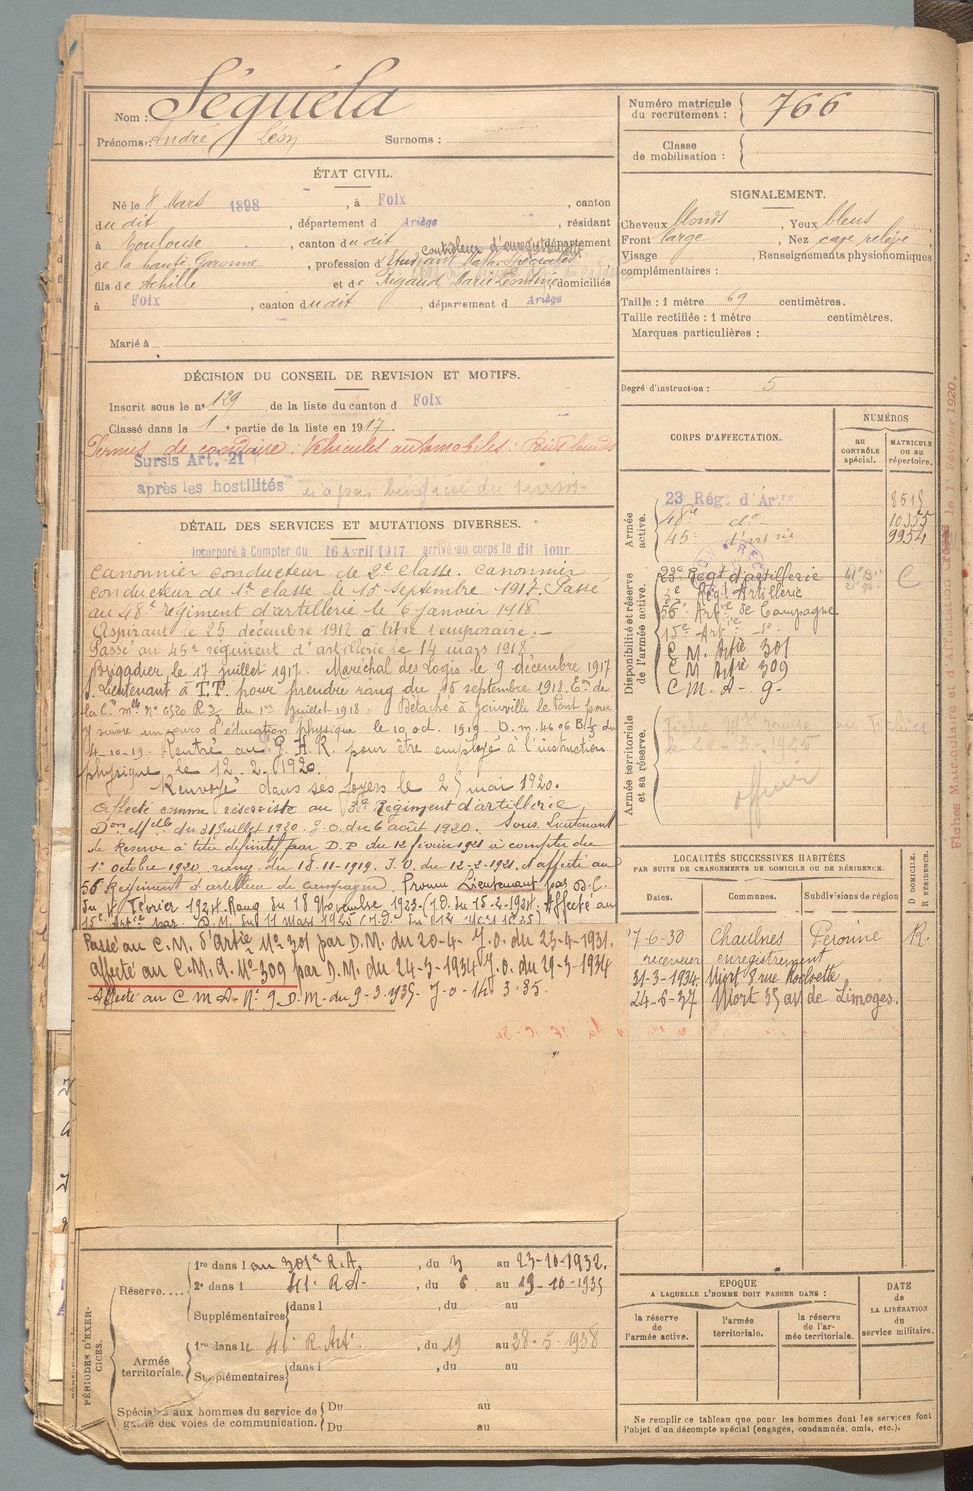 Nom : Séguéla
Prénoms : André Léon Surnoms :
Numéro matricule du recrutement : 766
Classe de mobilisation :
ÉTAT CIVIL.
Né le 8 Mars 1898, à Foix, canton
du dit, département d Ariège, résidant
à Toulouse, canton du dit, département
contrôleur d'enregistrement
de la haute Garonne, profession d'étudiant Math. Spéciales
fils de Achille et de Rigaud Marie Léontine domiciliés
à Foix, canton du dit, département d Ariège
Marié à
SIGNALEMENT.
Cheveux blonds, Yeux bleus
Front large, Nez cave relevé
Visage , Renseignements physionomiques
complémentaires :
Taille : 1 mètre 69 centimètres.
Taille rectifiée : 1 mètre centimètres.
Marques particulières :
Degré d'instruction : 5
DÉCISION DU CONSEIL DE REVISION ET MOTIFS.
Inscrit sous le n° 129 de la liste du canton d Foix
Classé dans la 1e partie de la liste en 1917.
Permis de conduire : Véhicules automobiles. Poids lourds
Sursis Art. 21
après les hostilités n'a pas bénéficié du sursis
DÉTAIL DES SERVICES ET MUTATIONS DIVERSES.
Incorporé à Compter du 16 Avril 1917 arrivé au corps le dit jour
canonnier conducteur de 2e classe. canonnier
conducteur de 1e classe le 15 septembre 1917. Passé
au 48e régiment d'artillerie le 6 janvier 1918
Aspirant le 25 décembre 1917 à titre temporaire.
Passé au 45e régiment d'artillerie le 14 mars 1918.
Brigadier le 17 juillet 1917. Maréchal des Logis le 9 décembre 1917
S. Lieutenant à T.T. pour prendre rang du 15 septembre 1918. Don de
la Con mlle No 0520 R 3/2 du 1er juillet 1918. Détaché à Joinville le Pont pour
y suivre un cours d'éducation physique le 10 oct. 1919. D. m. 4606 B 1/3 du
4-10-19. Rentré au G.A.R. pour être employé à l'instruction
physique le 12. 2. 1920.
Renvoyé dans ses foyers le 25 mai 1920.
Affecté comme réserviste au 3e Régiment d'artillerie,
Don Mlle du 31 juillet 1920. J.O. du 6 août 1920. Sous Lieutenant
de Réserve à titre définitif par D.P. du 12 février 1921 à compter du
1er octobre 1920, rang du 18-11-1919. J.O. du 12-2-1921. affecté au
56e Régiment d'artillerie de campagne. Promu Lieutenant par D.C.
du 4 Février 1924. Rang du 18 Novembre 1923 (J.O. du 15-2-1924. Affecté au
15e Artie par D.M. du 11 mars 1925
Passé au C.M. d'Artie No 301 par D.M. du 20-4- J.O. du 23-4-1931.
affecté au C.M.A. No 309 par D.M. du 24-3-1934 J.O. du 29-3-1934
Affecté au C M A- No 9 D-M- du 9-3-1935. J-o- 14. 3. 35.
CORPS D'AFFECTATION.
NUMÉROS
au contrôle spécial.
MATRICULE OU au répertoire.
Armée active.
23 Rég. d'Artie 8515
48e do 10355
45e d'artie 9954
Disponibilité et réserve de l'armée active.
23e Régt d'artillerie C
3e Régt Artillerie
56e Artie de Campagne
15e Artie
C M. Artie 301
C M. Artie 309
C M. A- 9-
Armée territoriale et sa réserve.
officier
LOCALITÉS SUCCESSIVES HABITÉES
PAR SUITE DE CHANGEMENTS DE DOMICILE OU DE RÉSIDENCE.
Dates. Communes. Subdivisions de région D DOMICILE. R RÉSIDENCE.
7-6-30 Chaulnes Peronne R.
receveur enregistrement
31-3-1934. Niort 8 rue
24-6-37 Niort 35 av de Limoges.
PÉRIODES D'EXERCICES.
Réserve....
1re dans l au 301e R.A., du 3 au 23-10-1932.
2e dans l 41e R.A., du 6 au 19-10-1935
Supplémentaires dans l , du au
Armée territoriale.
1re dans le 41e R. Art. , du 19 au 28-5-1938
Supplémentaires dans l , du au
Spéciaux aux hommes du service de garde des voies de communication.
Du au
Du au
EPOQUE
A LAQUELLE L'HOMME DOIT PASSER DANS :
la réserve de l'armée active.
l'armée territoriale.
la réserve de l'armée territoriale.
DATE de LA LIBÉRATION du service militaire.
Ne remplir ce tableau que pour les hommes dont les services font
l'objet d'un décompte spécial (engagés, condamnés, omis, etc.).